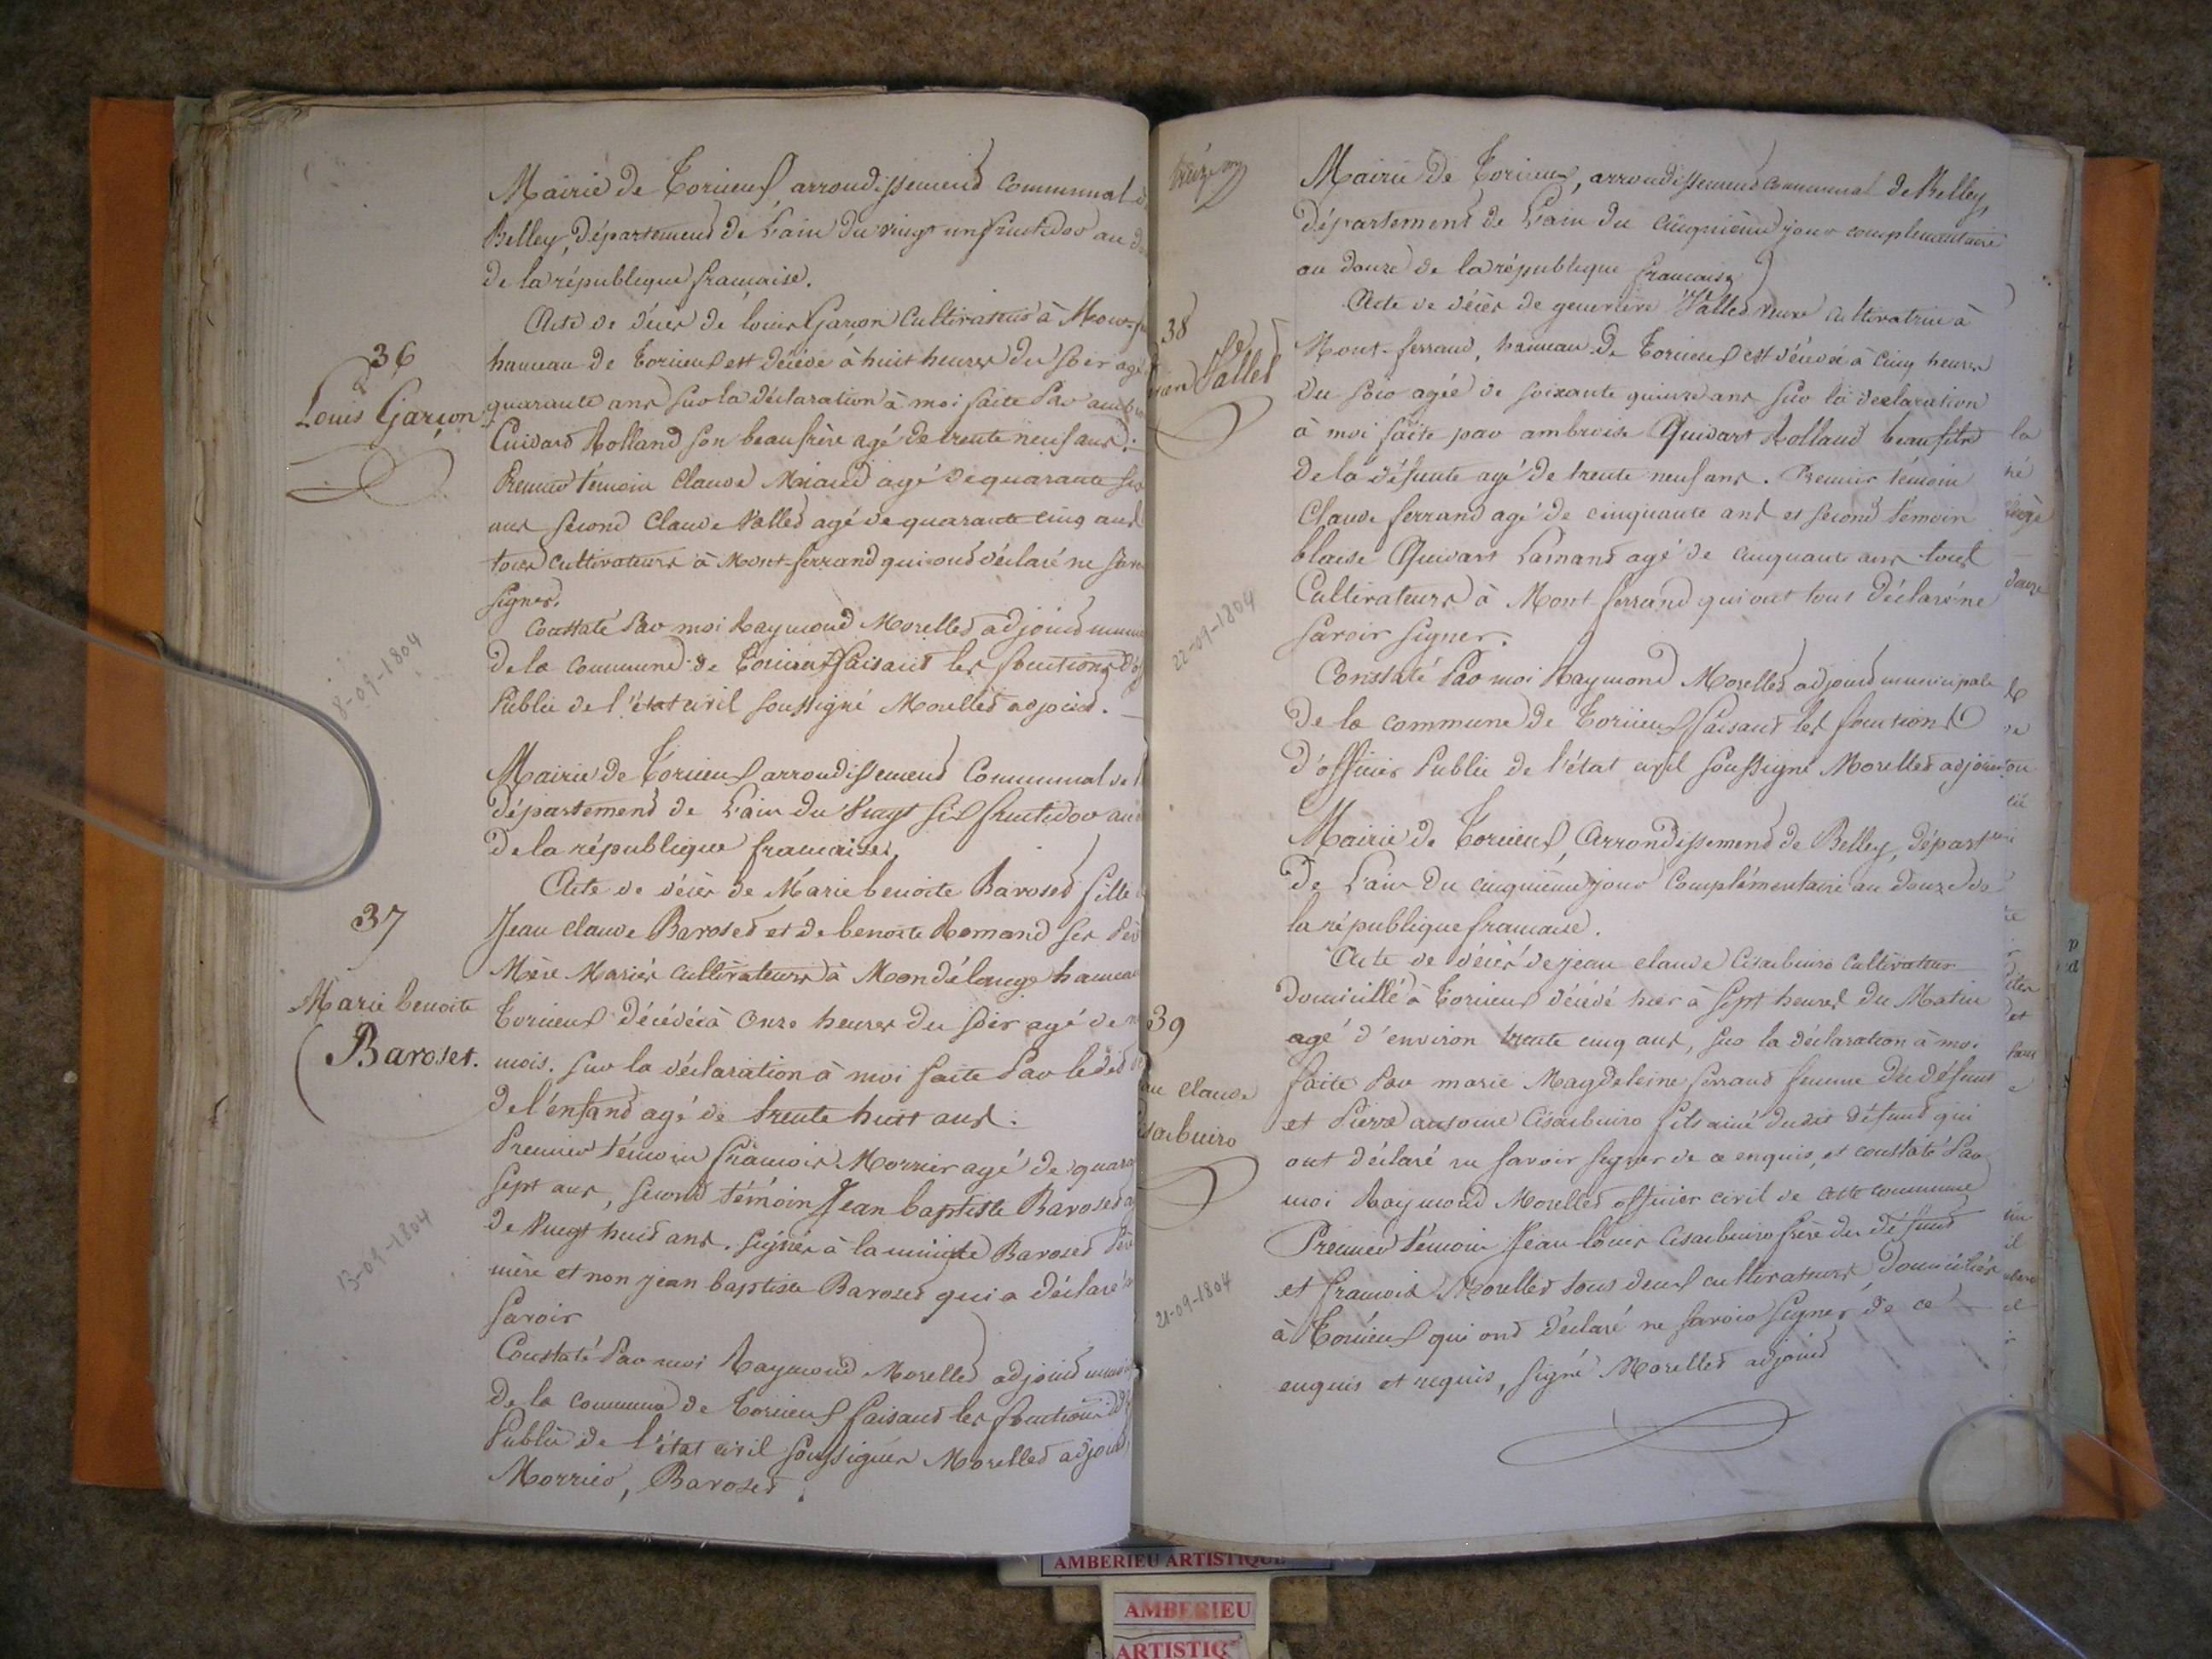 Mairie de Torcieux arrondissement Communal
Belley, département de L'ain du vingt un fructidor an
de la république française.
Acte de décès de louis Garçon Cultivateur à Mont-
36
hameau de Torcieux est décédé à huit heures du soir agé
Louis Garçon
quarante ans sur la déclaration à moi faite Par
Cuidard Rolland son beau frère agé de trente neuf ans :
Premier témoin Claude agé de quarante
ans second Claude Vallet agé de quarante cinq ans
tous cultivateurs à Mont-ferrand qui ont déclaré ne
signer.
Constaté Par moi Raymond Morellet adjoint
8-09-1804
de la commune de Torcieux faisant les fonctions
Public de l'état civil soussigné Morellet adjoint.
Mairie de Torcieux arrondissement Communal de
département de L'ain du Vingt six fructidor an
de la république française.
Acte de décès de Marie benoite Baroset fille
37
Jean claude Baroset et de benoite Romand ses
Mère Mariés cultivateurs à Mondélonge
Marie benoite
Baroset.
Torcieux décédée à Onze heures du soir agé de
mois. sur la déclaration à moi faite Par ledit
de l'enfant agé de trente huit ans.
Premier témoin francois Morrier agé de
sept ans, second témoin Jean baptiste Baroset
de Vingt huit ans. signés à la minute Baroset
13-09-1804
mère et non jean baptiste Baroset qui a déclaré
savoir
Constaté Par moi Raymond Morellet adjoint
de la commune de Torcieux faisant les fonctions
Public de l'état civil soussignés Morellet adjoint,
Morrier, Baroset.
Mairie de Torcieux, arrondissement communal de Belley,
département de L'ain du cinquième jour complémentaire
an douze de la république française
Acte de décès de genevieve Vallet veuve cultivatrice à
38
Vallet
Mont-ferrand, hameau de Torcieux est décédée à Cinq heures
du soir agée de soixante quinze ans sur la déclaration
à moi faite par ambroise Quidart Rolland beau fils
de la défunte agé de trente neuf ans. Premier témoin
Claude ferrand agé de cinquante ans et second témoin
blaise Quidart Lamand agé de cinquante ans tous
Cultivateurs à Mont ferrand qui ont tous déclaré ne
savoir signer.
22-09-1804
Constaté Par moi Raymond Morellet adjoint municipale
de la commune de Torcieux faisant les fonctions
d'officier Public de l'état civil soussigné Morellet adjoint
Mairie de Torcieux, Arrondissement de Belley,
de L'ain du cinquième jour Complémentaire an douze de
la république française.
Acte de décès de jean claude cultivateur
domicillié à Torcieux décédé hier à sept heures du Matin
39
agé d'environ trente cinq ans, sur la déclaration à moi
claude
faite Par marie Magdeleine ferrand femme du défunt
et Pierre antoine fils ainé dudit défunt qui
ont déclaré ne savoir signer de ce enquis, et constaté Par
moi Raymond Morellet officier civil de cette commune
Premier témoin Jean louis frère du défunt
et francois Morellet tous deux cultivateurs domiciliés
21-09-1804
à Torcieux qui ont déclaré ne savoir signer de ce
enquis et requis, signé Morellet adjoint
AMBERIEU ARTISTIQUE
AMBERIEU
ARTISTIQ